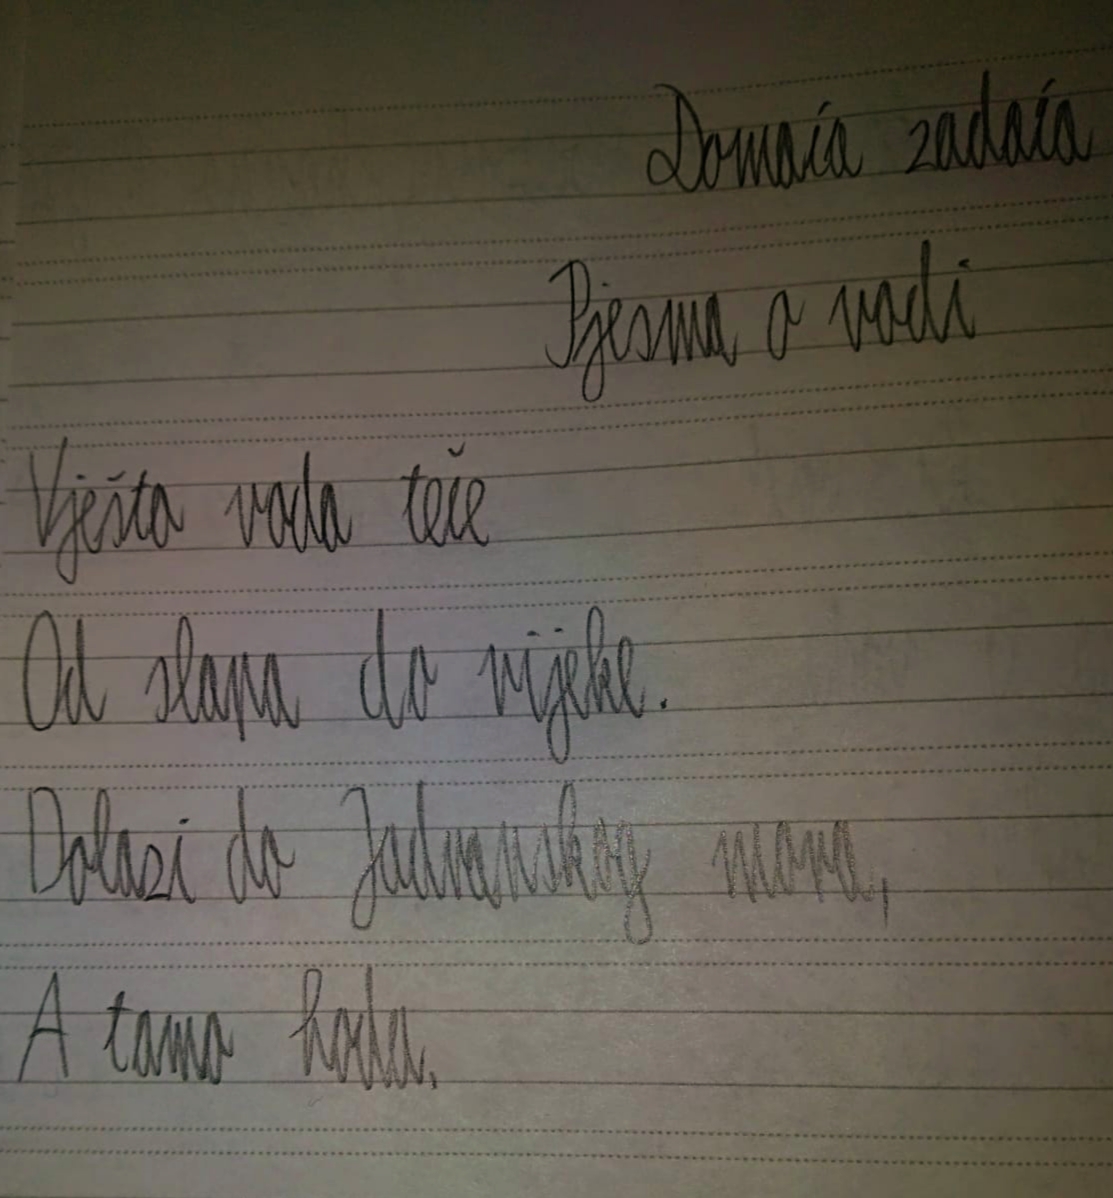 Domaća zadaća
Pjesma o vodi
Vješta voda teče
Od slapa do rijeke.
Dolazi do Jadranskog mora,
A tamo hoda.